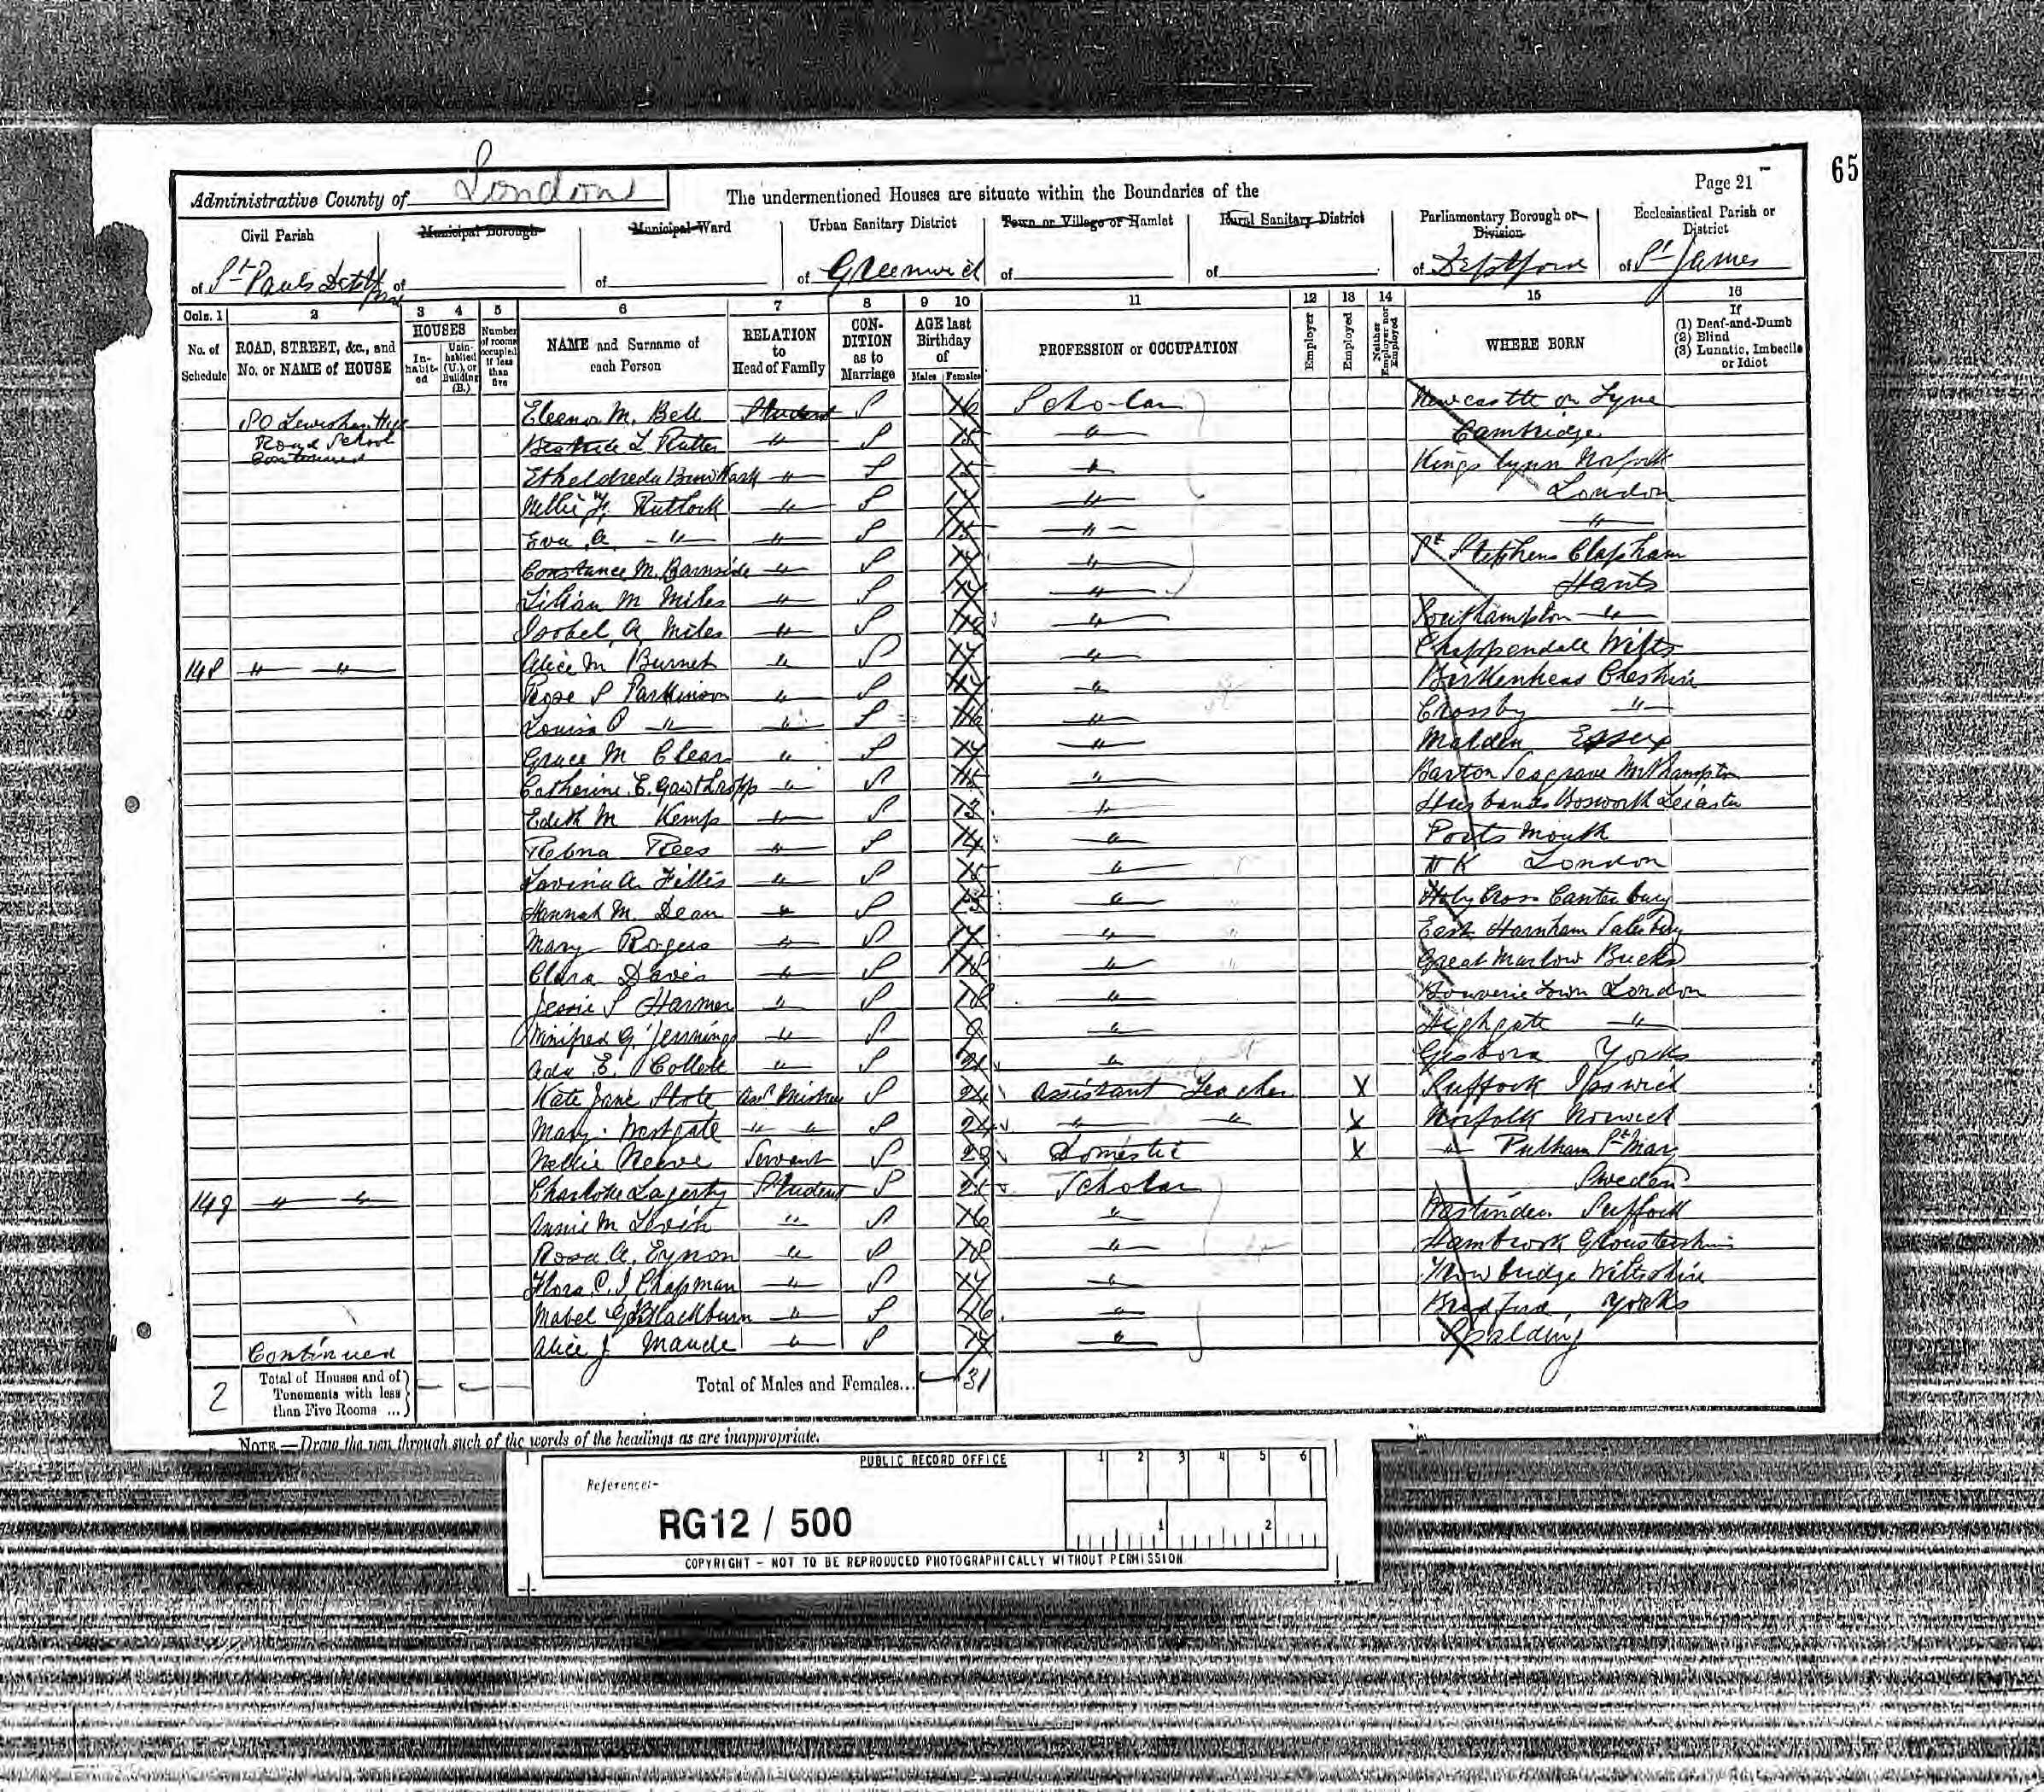 65
Administrative County of London
The undermentioned Houses are situate within the Boundaries of the
Page 21
Civil Parish
Municipal Borough
Municipal Ward
Urban Sanitary District
Town or Village or Hamlet
Rural Sanitary District
Parliamentary Borough or Division
Ecclesiastical Parish or District
of St Pauls of of of Greenwich of of of Deptford of St James
Cols. 1 2 3 4 5 6 7 8 9 10 11 12 13 14 15 16
No. of Schedule
ROAD, STREET, &c., and No. or NAME of HOUSE
HOUSES
In-habit-ed
Unin-habited (U.), or Building (B.)
Number of rooms occupied if less than five
NAME and Surname of each Person
RELATION to Head of Family
CON-DITION as to Marriage
AGE last Birthday of
Males Females
PROFESSION or OCCUPATION
Employer
Employed
Neither Employer nor Employed
WHERE BORN
If
(1) Deaf-and-Dumb
(2) Blind
(3) Lunatic, Imbecile or Idiot
Eleenor M. Bell Student S 16 Scholar Newcastle on Tyne
Road School
Continued
Beatrice L Rutter " S 15 " Cambridge
Etheldreda " S 15 " Kings Lynn Norfolk
Nellie " S 17 " London
Eva A. " " S 15 " "
Constance M. Barnside " S 17 " St Stephens Clapham
Lilian M Miles " S " Hants
Isobel A Miles " S " Southampton "
148 " " Alice M Burnet " S 17 " Wilts
Rose S Parkinson " S 17 " Birkenhead Cheshire
Louisa " " S 16 " Crossby "
Grace M Clear " S 17 " Malden Essex
Catherine E. Gawthropp " S 15 " Barton Seagrave
Edith M Kemp " S 13 " Husbands Bosworth Leicester
Rees " S 14 " Portsmouth
Lavinia A " S 15 " N K London
Hannah M. Dean " S " Holy Cross Canterbury
Mary Rogers " S 17 " East Harnham
Clara Davis " S 18 " Great Marlow Bucks
Jessie S Harmer " S 18 " London
Winifred G. Jennings " S 9 " Highgate "
Ada E. Collett " S 21 " Yorks
Kate Jane S 24 Assistant Teacher X Suffolk Ipswich
Mary Westgate " " S 24 " " X Norfolk Norwich
Nellie Neeve Servant S 28 Domestic X " Pulham St Mary
149 " " Charlotte Student S 21 Scholar Sweden
Annie M " S 16 " Suffolk
Rosa A. Eynon " S 18 " Hambrook Gloustershire
Flora C. I. Chapman " S 17 " Trowbridge Wiltshire
Mabel Blackburn " S 16 " Bradford Yorks
Alice J Maude " S 17 " Spalding
Continued
2 Total of Houses and of Tenements with less than Five Rooms ...
Total of Males and Females... 31
NOTE.—Draw the pen through such of the words of the headings as are inappropriate.
PUBLIC RECORD OFFICE
1 2 3 4 5 6
Reference:-
RG12 / 500
1 2
COPYRIGHT - NOT TO BE REPRODUCED PHOTOGRAPHICALLY WITHOUT PERMISSION